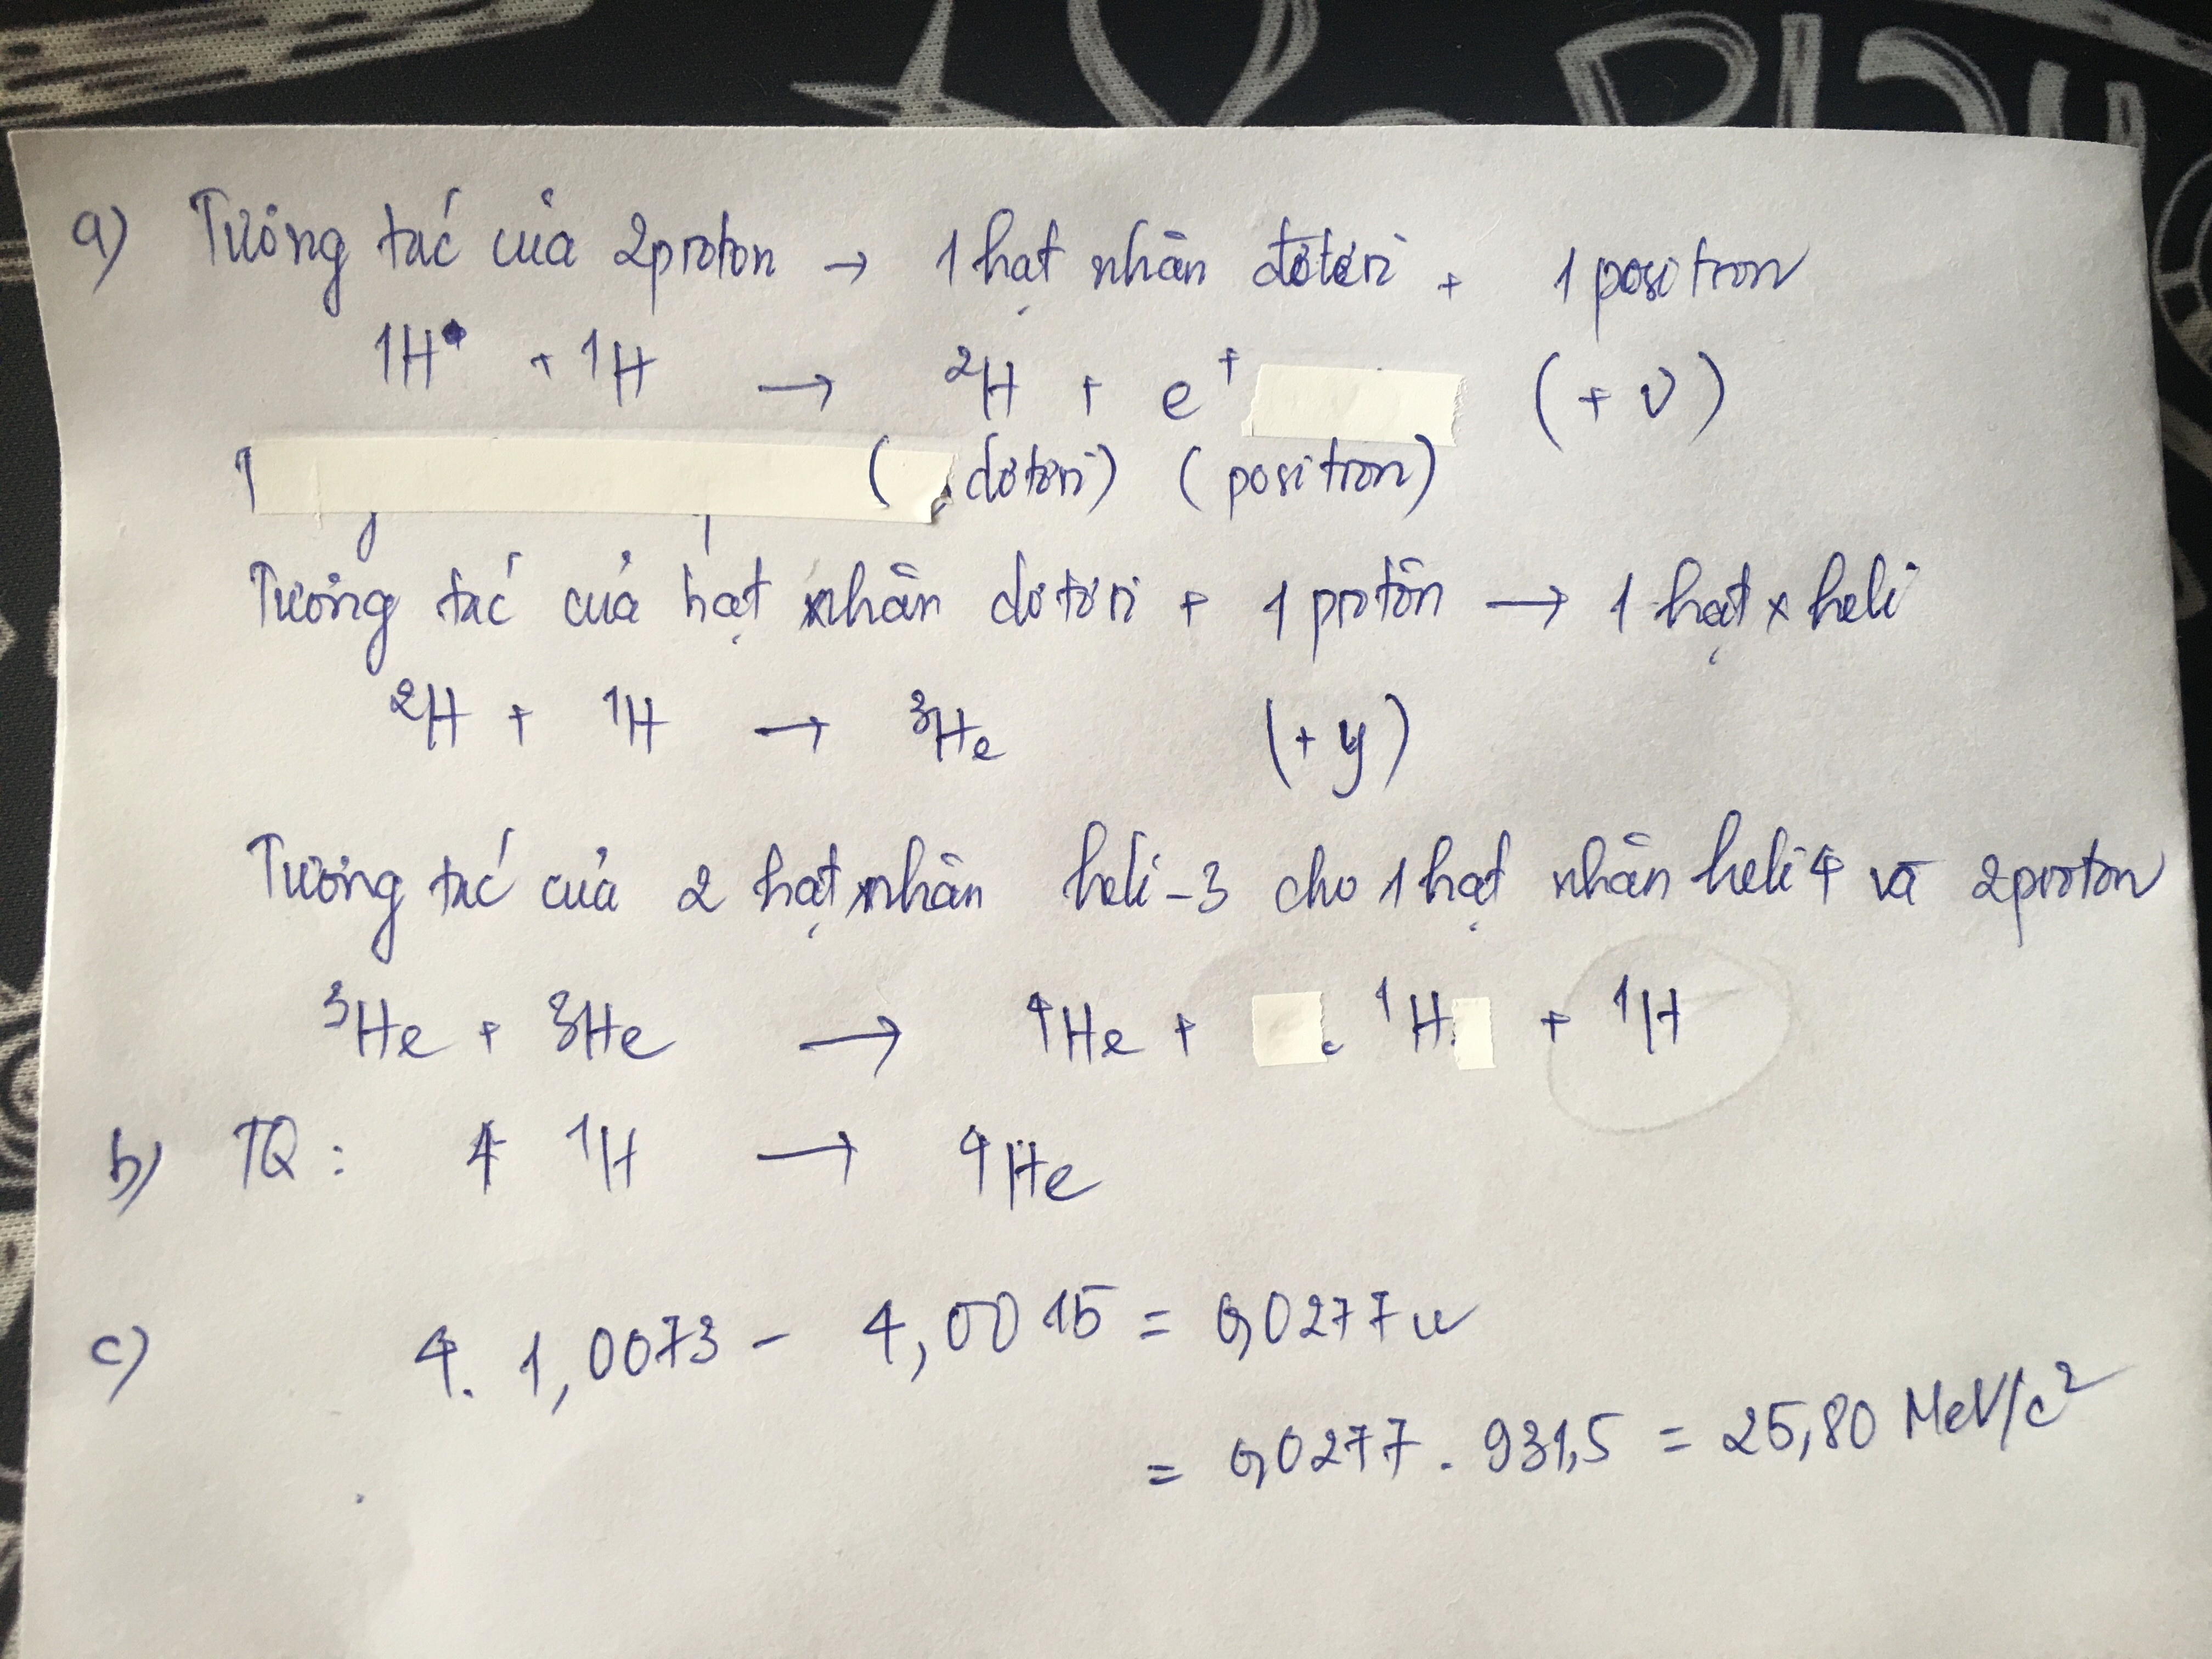 a) Tương tác của 2proton → 1 hạt nhân đơtơri + 1 positron
¹H + ¹H → ²H + e⁺ (+ ν)
(đơtơri) (positron)
Tương tác của hạt nhân đơtơri + 1 proton → 1 hạt x heli
²H + ¹H → ³He (+ γ)
Tương tác của 2 hạt nhân heli-3 cho 1 hạt nhân heli 4 và 2proton
³He + ³He → ⁴He + ¹H + ¹H
b) TQ : 4 ¹H → ⁴He
c) 4. 1,0073 - 4,0015 = 0,0277u
= 0,0277 . 931,5 = 25,80 MeV/c²